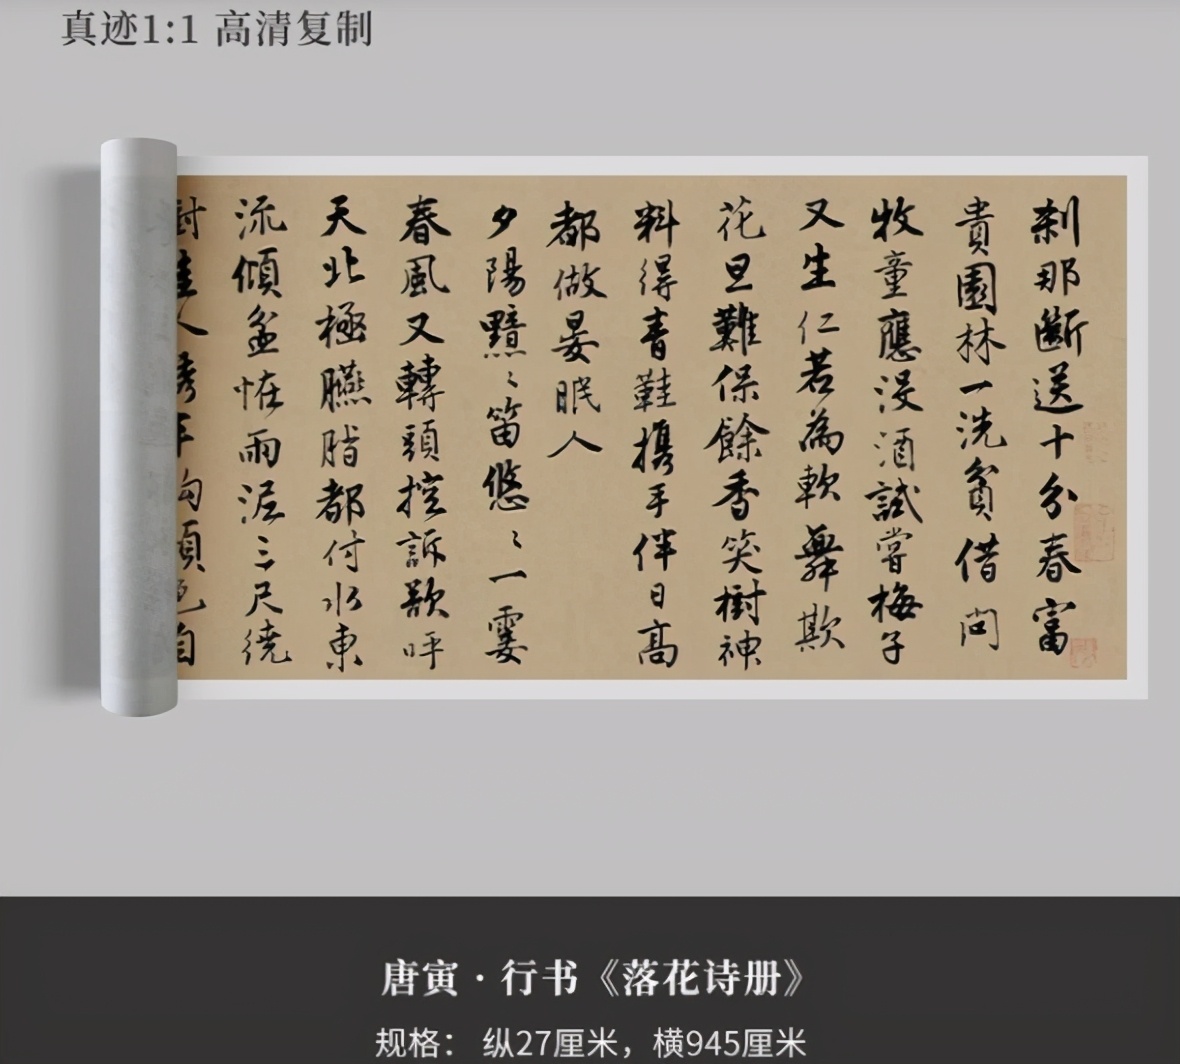 真迹1:1 高清复制
刹那断送十分春富
貴園林一洗貧借問
牧童應没酒試嘗梅子
又生仁若為軟舞欺
花旦難保餘香笑樹神
料得青鞋攜手伴日高
都做晏眠人
夕陽黯〻笛悠〻一霎
春風又轉頭控訴欲呼
天北極臙脂都付水東
流傾盆恠雨泥三尺繞
樹佳人繡半鈎顏色自
唐寅·行书《落花诗册》
规格： 纵27厘米，横945厘米